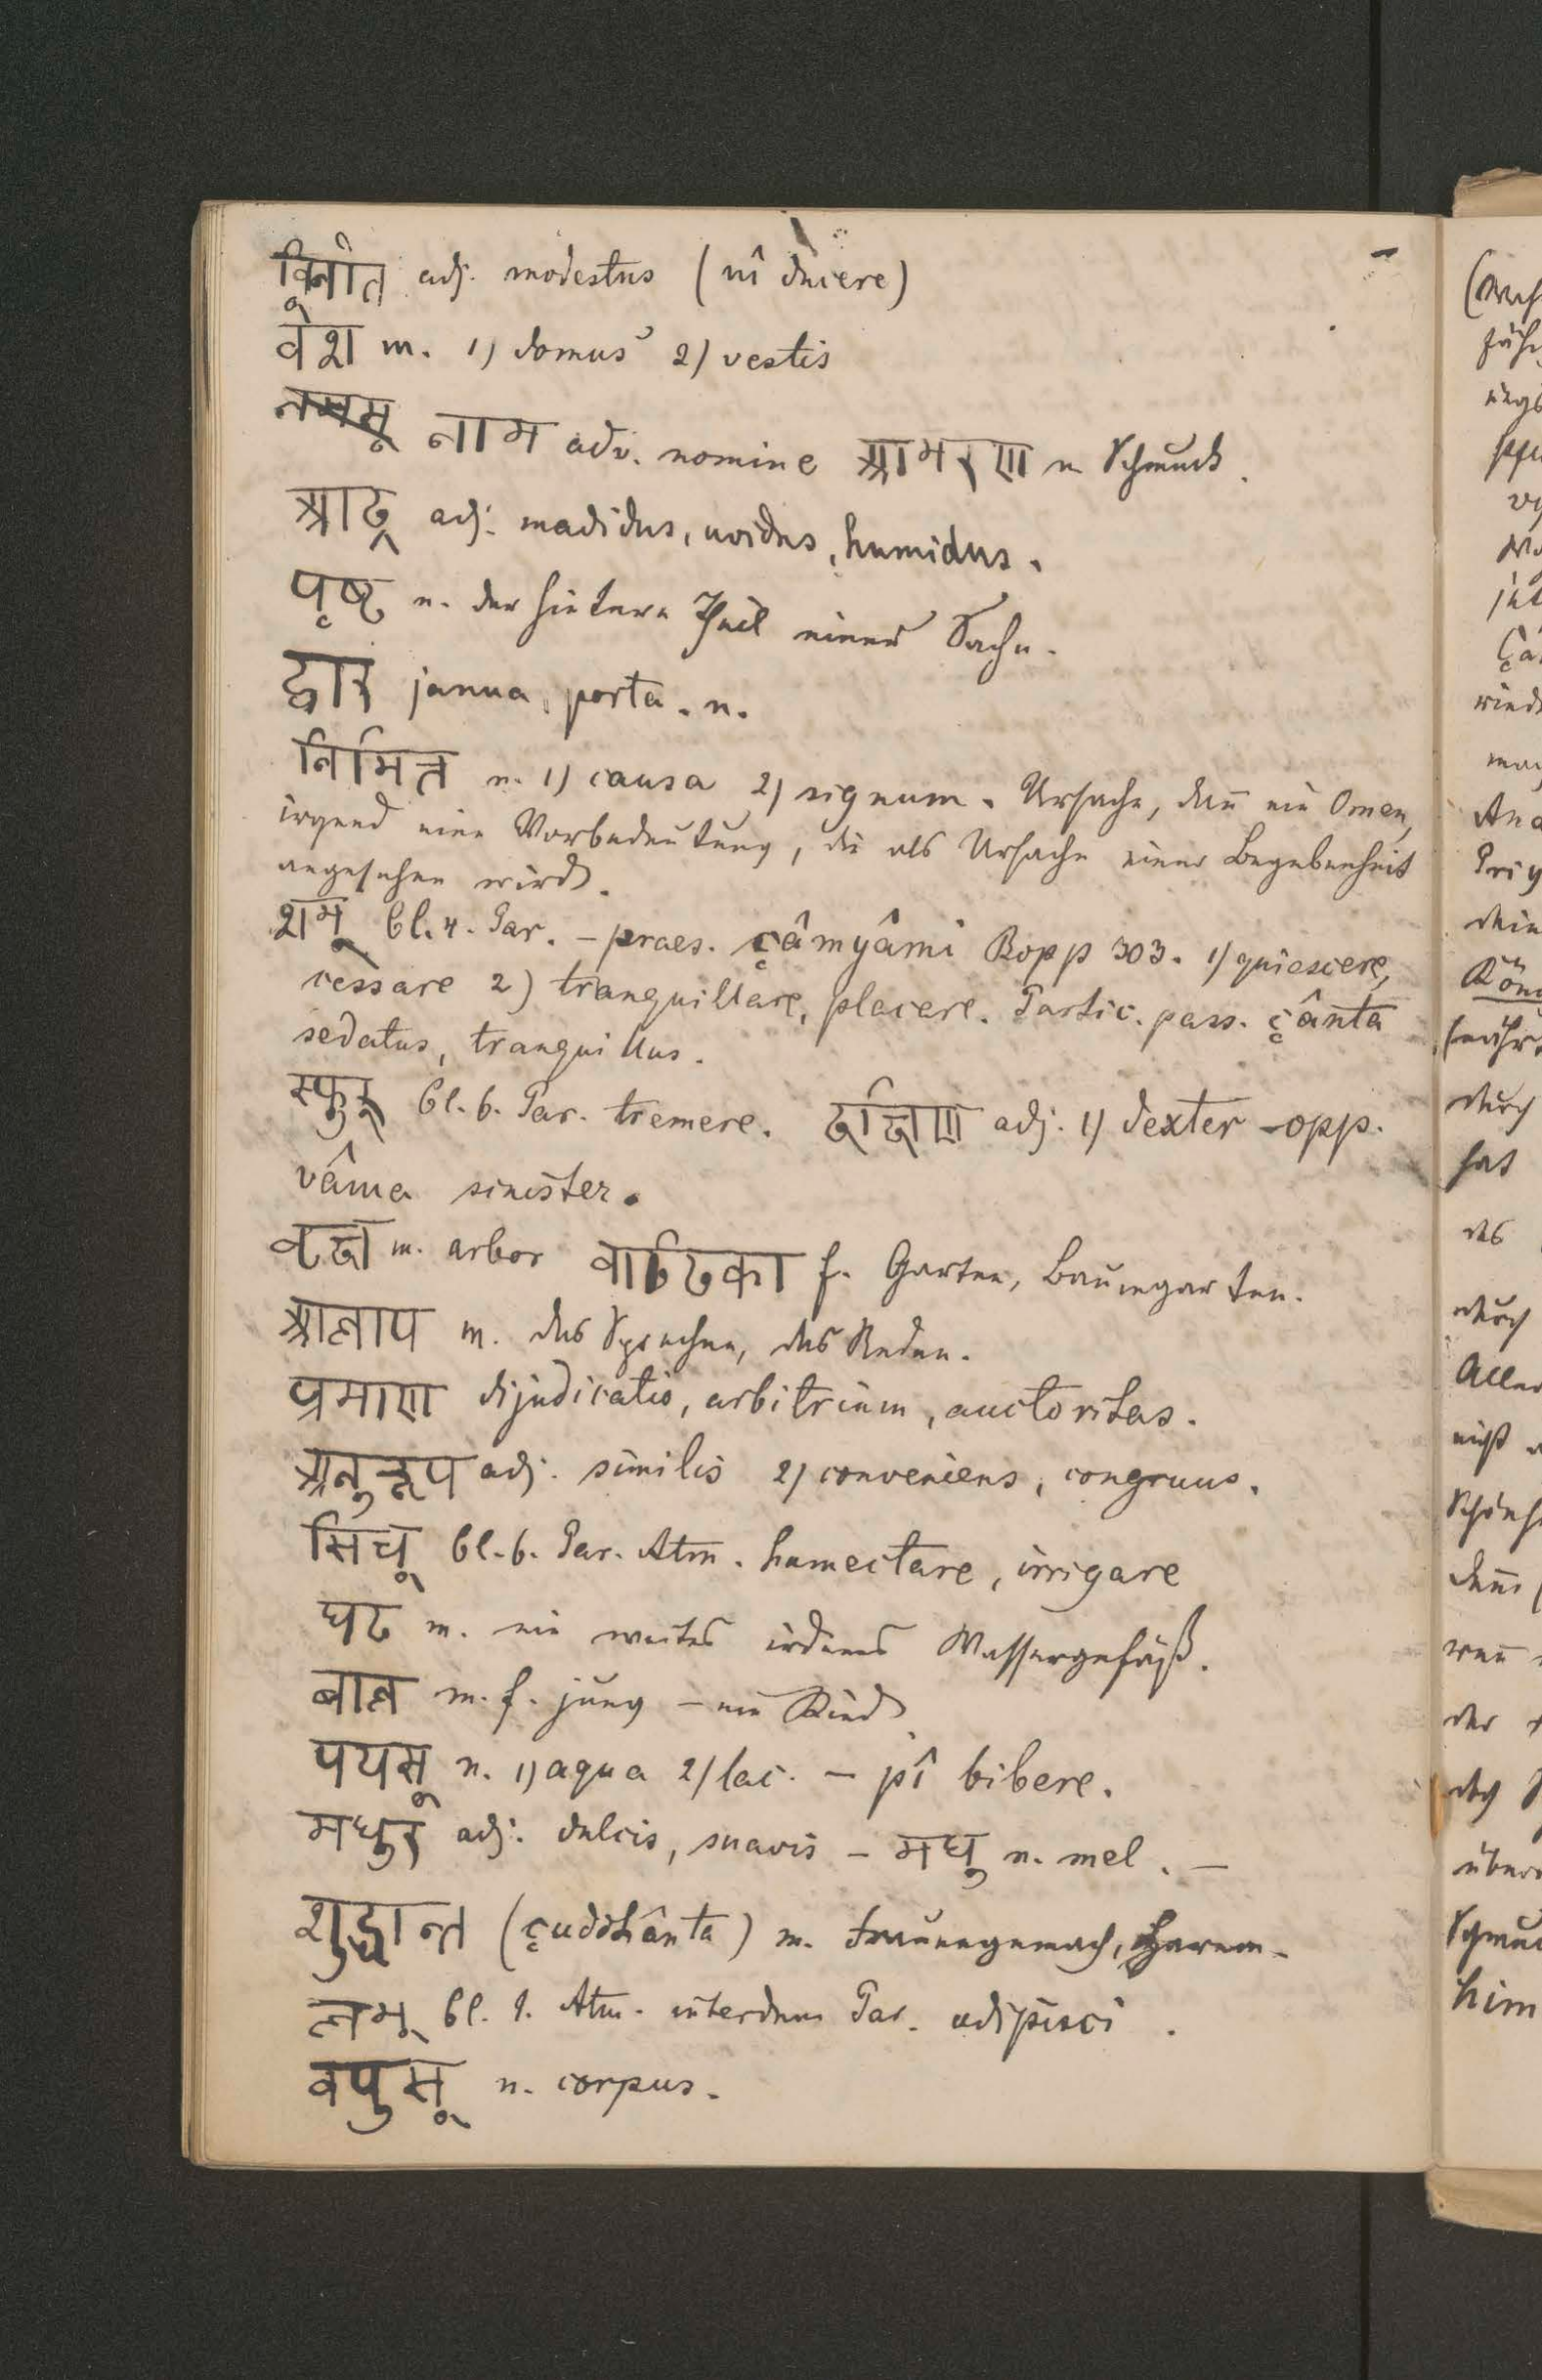 विनीत adj. modestus (nî ducere)
वेश m. 1) domus 2) vestis
नाम adv. nomine आभरण n Schmuck.
आर्द्र adj. madidus, uvidus, humidus.
पृष्ठ n. der hintere Theil einer Sache.
द्वार janua, porta. n.
निमित्त n. 1) causa 2) signum. Ursache, dañ ein Omen,
irgend eine Vorbedeutung, die als Ursache einer Begebenheit
angesehen wird.
शम् Cl. 4. Par. – praes. çâmyâmi Bopp 303. 1) quiescere,
cessare 2) tranquillare, placere. Partic. pass. çânta
sedatus, tranquillus.
स्फुर् Cl. 6. Par. tremere. दक्षिण adj. 1) dexter – opp.
vâma sinister.
वृक्ष m. arbor वाटिका f. Garten, Baumgarten.
आलाप m. das Sprechen, das Reden.
प्रमाण dijudicatio, arbitrium, auctoritas.
अनुरूप adj. similis 2) conveniens, congruus.
सिच् Cl. 6. Par. Atm. humectare, irrigare
घट m. ein weites irdenes Wassergefäß.
बाल m. f. jung – ein Kind.
पयस् n. 1) aqua 2) lac. – pî bibere.
मधुर adj. dulcis, suavis – मधु n. mel. –
शुद्धान्त (çuddhânta) m. Frauengemach, Harem.
लभ् Cl. 1. Atm. interdum Par. adipisci.
वपुस् n. corpus.